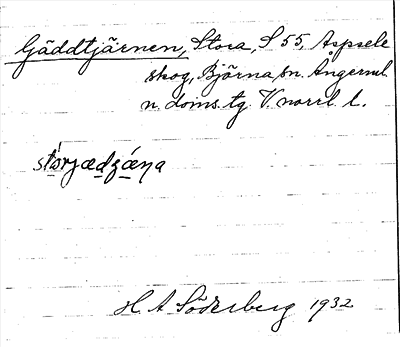 Gäddtjärnen, Stora, S 55, Aspsele
skog, Björna sn. Ångerml.
n. doms. tg. V. norrl. l.
stórjædʒǽŋa
H A Söderberg 1932